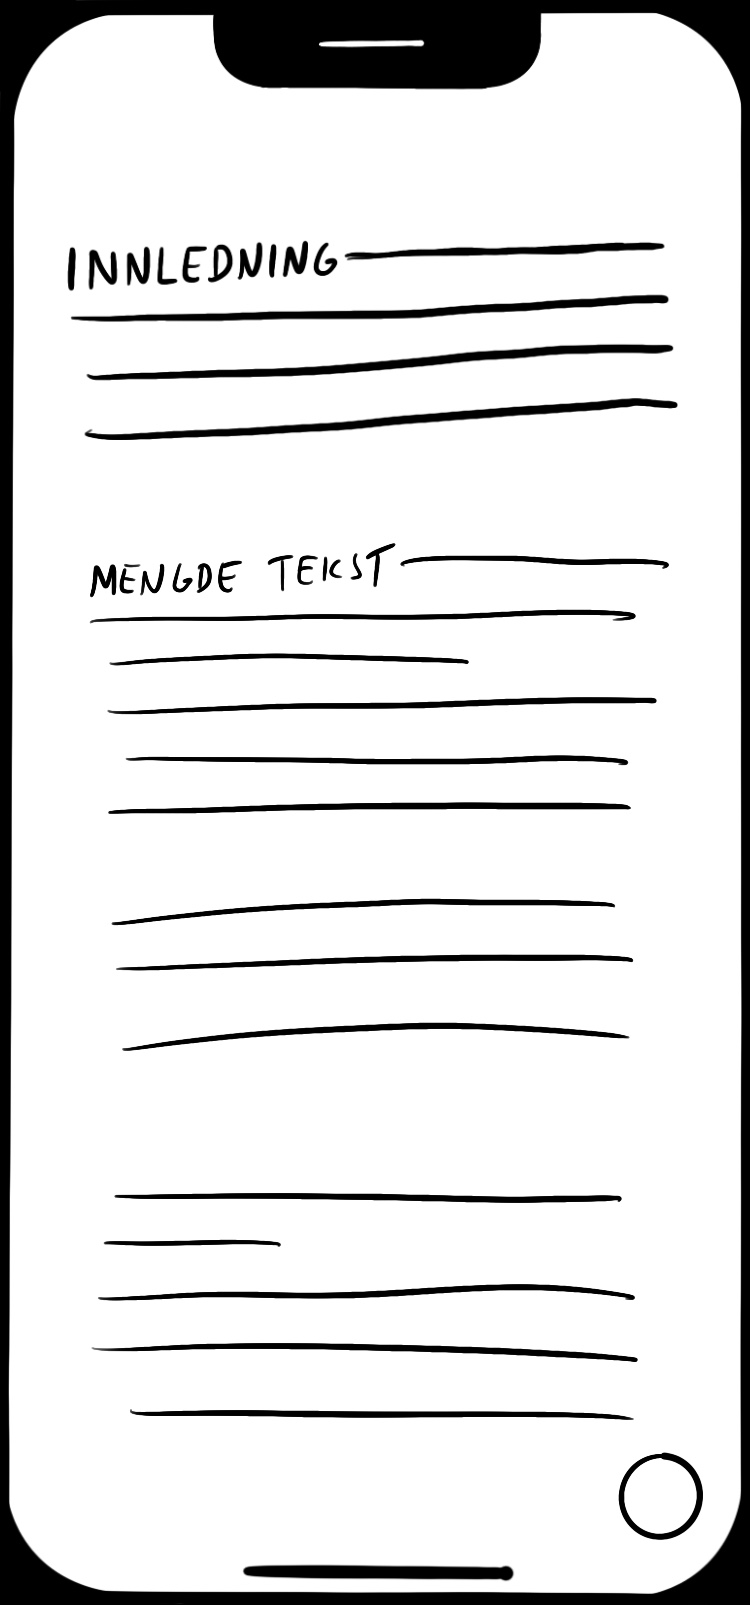 INNLEDNING
MENGDE TEKST